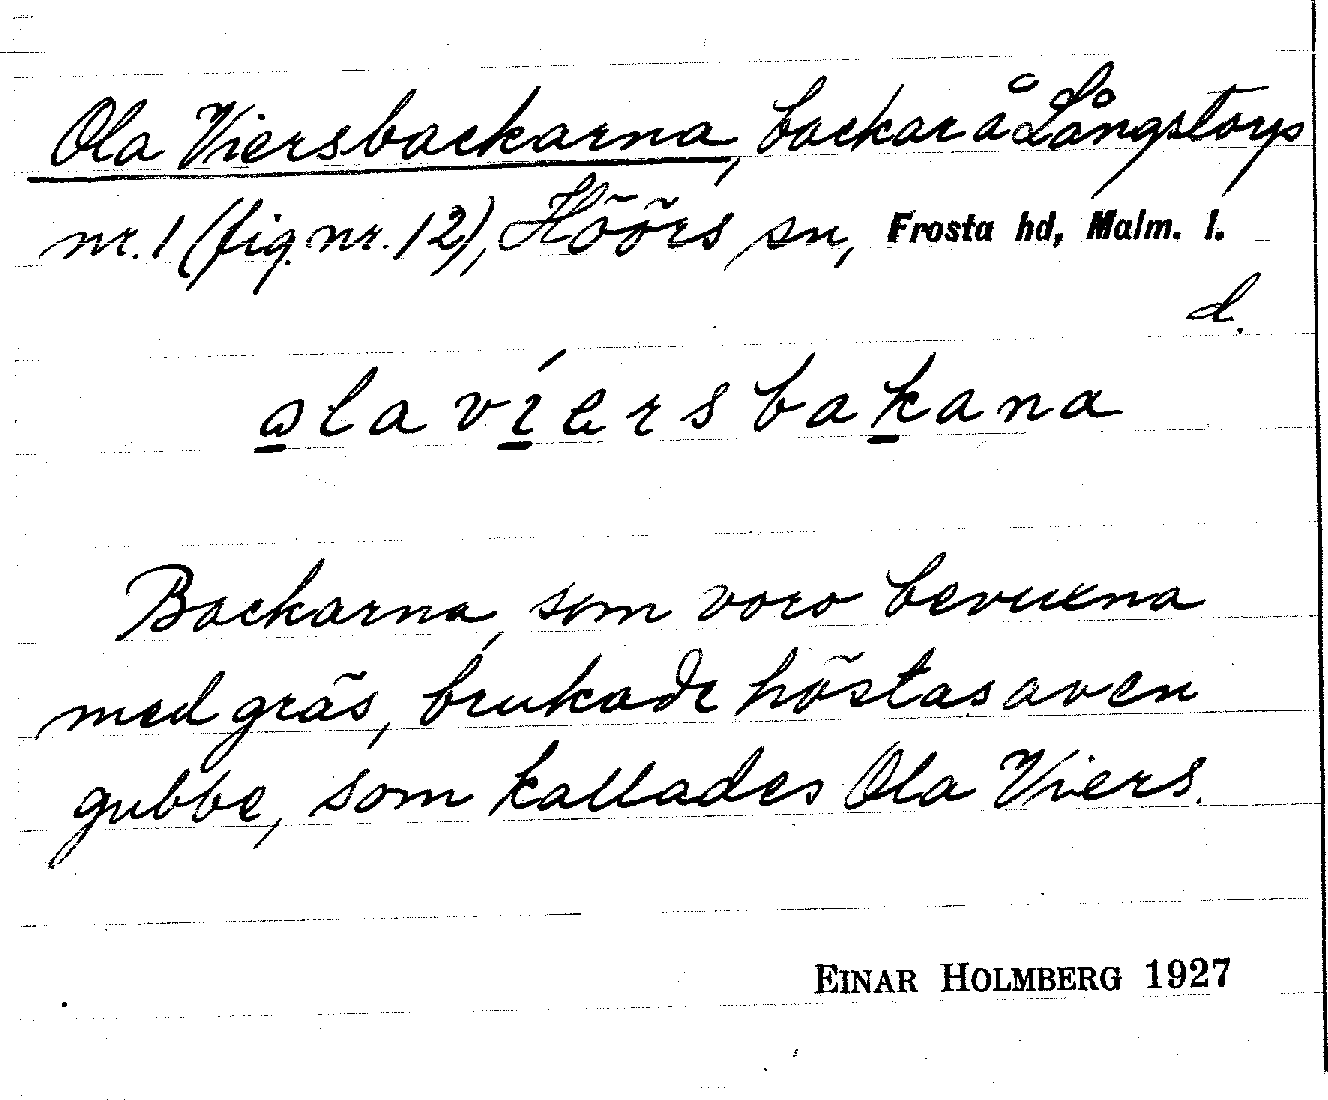 Ola Viersbackarna, backar å Långstorps
nr. 1 (fig. nr. 12), Höörs sn, Frosta hd, Malm. l.
d.
ola víersbakana
Backarna, som voro bevuxna
med gräs, brukade höstas av en
gubbe, som kallades Ola Viers.
EINAR HOLMBERG 1927